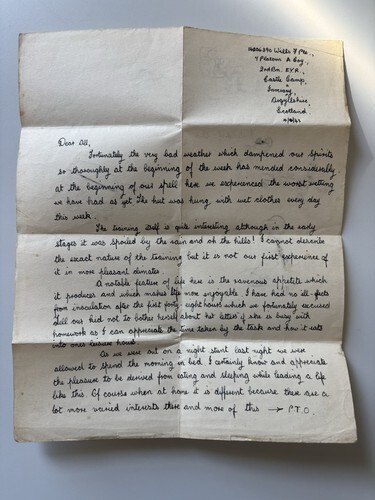 Wills F Pte.,
7 Platoon A Coy.,
2nd Bn. E.Y.R.,
Castle Camp,
Inveray,
Argyllshire,
Scotland
Dear All,
Fortunately the very bad weather which dampened our spirits
so thoroughly at the beginning of the week has mended considerably
at the beginning of our spell here we experienced the worst wetting
we have had as yet. The hut was hung with wet clothes every day
this week.
The training itself is quite interesting although in the early
stages it was spoiled by the rain and oh the hills! I cannot describe
the exact nature of the training but it is not our first experience of
it in more pleasant climates.
A notable feature of life here is the ravenous appetite which
it produces and which makes life more enjoyable. I have had no ill-effects
from inoculation after the first forty-eight hours which we fortunately excused
Tell our kid not to bother herself about his letters if she is busy with
homework as I can appreciate the time taken by the task and how it eats
into one's leisure hours.
As we were out on a night stunt last night we were
allowed to spend the morning in bed. I certainly know and appreciate
the pleasure to be derived from eating and sleeping while leading a life
like this. Of course when at home it is different because there are a
lot more varied interests there and more of this → P.T.O.